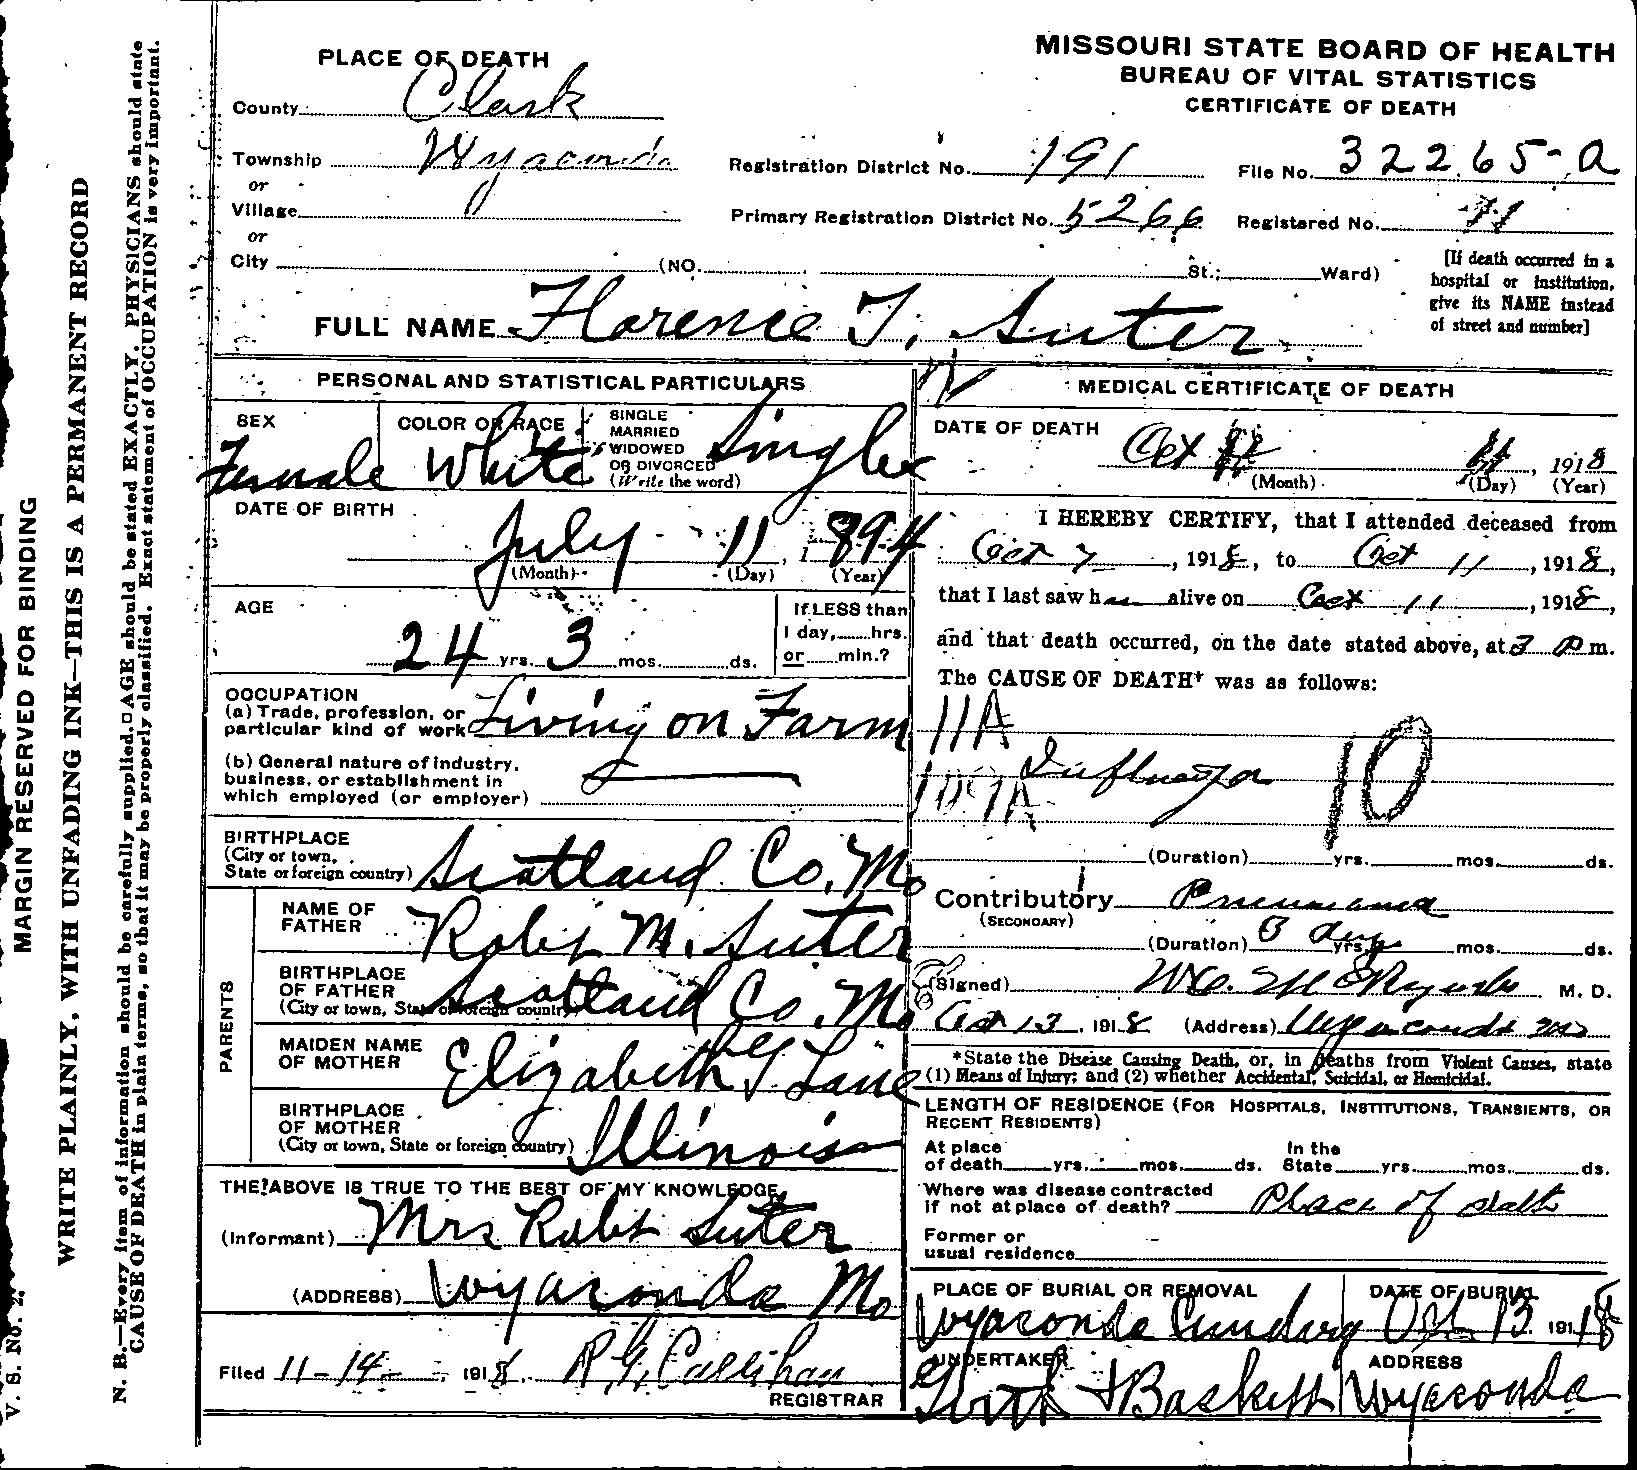 MISSOURI STATE BOARD OF HEALTH
BUREAU OF VITAL STATISTICS
CERTIFICATE OF DEATH
PLACE OF DEATH
County Clark
Township Wyaconda
or
Village
or
City (NO. St.; Ward)
Registration District No. 191
File No. 32265-a
Primary Registration District No. 5266
Registered No.
[If death occurred in a
hospital or institution,
give its NAME instead
of street and number]
FULL NAME Florence T. Suter
PERSONAL AND STATISTICAL PARTICULARS
SEX Female
COLOR OR RACE White
SINGLE
MARRIED
WIDOWED
OR DIVORCED
(Write the word) Single
DATE OF BIRTH
July 11 1894
(Month) (Day) (Year)
AGE
24 yrs. 3 mos. ds.
If LESS than
1 day, hrs.
or min.?
OCCUPATION
(a) Trade, profession, or
particular kind of work Living on Farm
(b) General nature of industry,
business, or establishment in
which employed (or employer)
BIRTHPLACE
(City or town,
State or foreign country) Scotland Co. Mo
PARENTS
NAME OF
FATHER Robt M. Suter
BIRTHPLACE
OF FATHER
(City or town, State or foreign country) Scotland Co. Mo
MAIDEN NAME
OF MOTHER Elizabeth Lane
BIRTHPLACE
OF MOTHER
(City or town, State or foreign country) Illinois
THE ABOVE IS TRUE TO THE BEST OF MY KNOWLEDGE
(Informant) Mrs Robt Suter
(ADDRESS) Wyaconda Mo
Filed 11-14- 1918. R. G. Callihan
REGISTRAR
MEDICAL CERTIFICATE OF DEATH
DATE OF DEATH
Oct 1918
(Month) (Day) (Year)
I HEREBY CERTIFY, that I attended deceased from
Oct 7, 1918, to Oct 11, 1918,
that I last saw her alive on Oct 11, 1918,
and that death occurred, on the date stated above, at 3 P m.
The CAUSE OF DEATH* was as follows:
11A
Influenza
10
(Duration) yrs. mos. ds.
Contributory Pneumonia
(SECONDARY)
(Duration) 3 days yrs. mos. ds.
(Signed) M. D.
Oct 13, 1918 (Address) Wyaconda Mo
*State the Disease Causing Death, or, in deaths from Violent Causes, state
(1) Means of Injury; and (2) whether Accidental, Suicidal, or Homicidal.
LENGTH OF RESIDENCE (FOR HOSPITALS, INSTITUTIONS, TRANSIENTS, OR
RECENT RESIDENTS)
At place
of death yrs. mos. ds.
In the
State yrs. mos. ds.
Where was disease contracted
if not at place of death? Place of death
Former or
usual residence
PLACE OF BURIAL OR REMOVAL
Wyaconda
DATE OF BURIAL
Oct 13 1918
UNDERTAKER
& Baskett
ADDRESS
Wyaconda
MARGIN RESERVED FOR BINDING
WRITE PLAINLY, WITH UNFADING INK—THIS IS A PERMANENT RECORD
N. B.—Every item of information should be carefully supplied. AGE should be stated EXACTLY. PHYSICIANS should state
CAUSE OF DEATH in plain terms, so that it may be properly classified. Exact statement of OCCUPATION is very important.
V. S. No. 2.